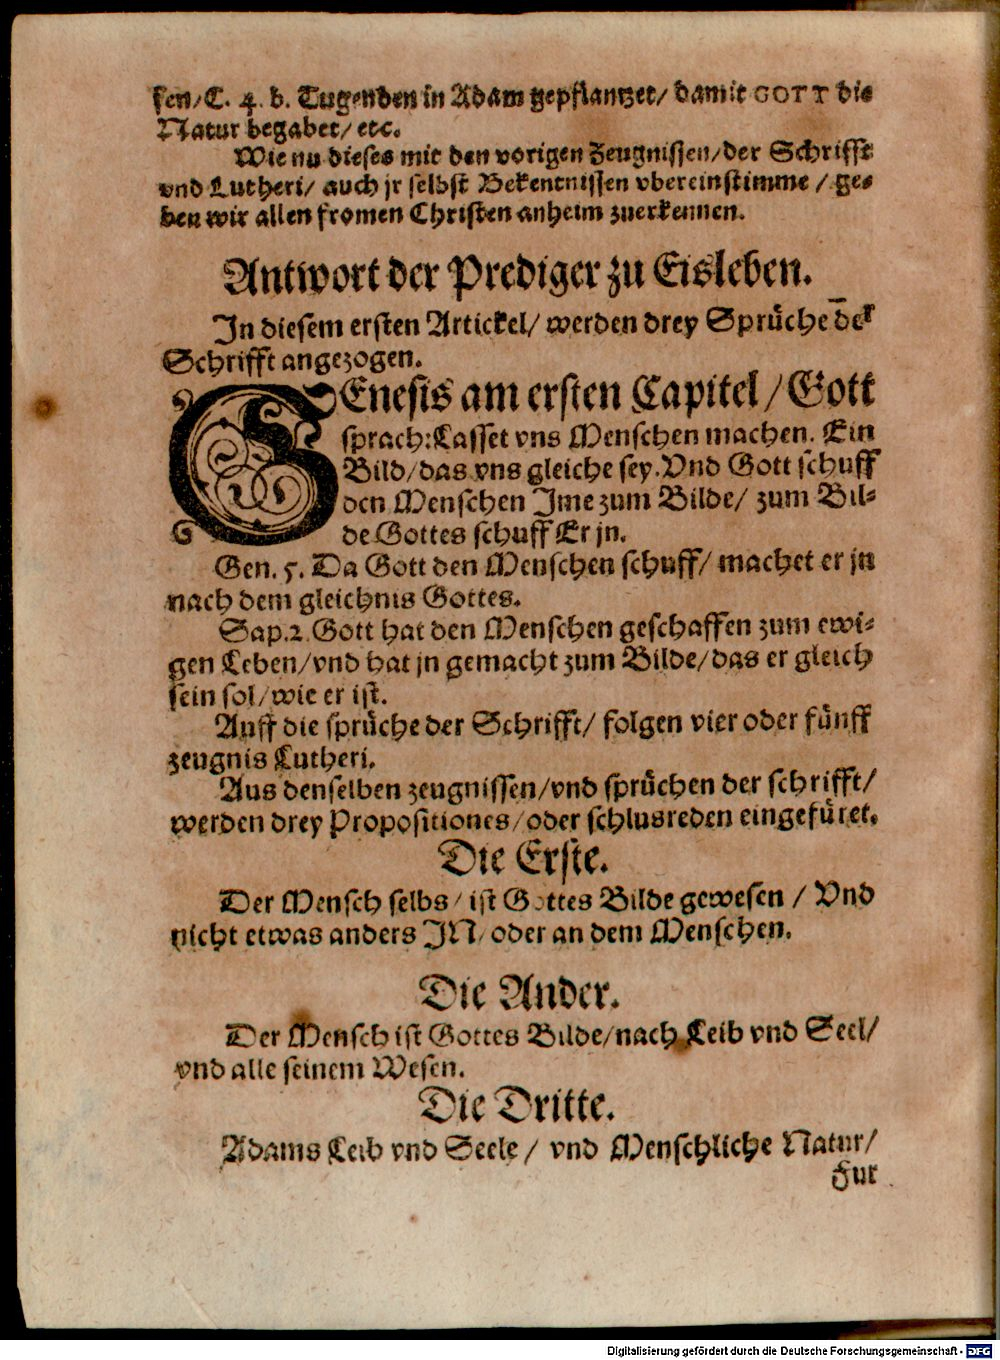 sen/ C. 4. b. Tugenden in Adam gepflantzet/ damit GOTT die
Natur begabet/ etc.
Wie nu dieses mit den vorigen Zeugnissen/ der Schrifft
vnd Lutheri/ auch jr selbst Bekentnissen vbereinstimme / ge-
ben wir allen fromen Christen anheim zuerkennen.
Antwort der Prediger zu Eisleben.
In diesem ersten Artickel/ werden drey Sprüche der
Schrifft angezogen.
GEnesis am ersten Capitel / Gott
sprach: Lasset vns Menschen machen. Ein
Bild/ das vns gleiche sey. Vnd Gott schuff
den Menschen Ime zum Bilde/ zum Bil-
de Gottes schuff Er jn.
Gen. 5. Da Gott den Menschen schuff/ machet er jn
nach dem gleichnis Gottes.
Sap. 2. Gott hat den Menschen geschaffen zum ewi-
gen Leben/ vnd hat jn gemacht zum Bilde/ das er gleich
sein sol/ wie er ist.
Auff die sprüche der Schrifft/ folgen vier oder fünff
zeugnis Lutheri.
Aus denselben zeugnissen/ vnd sprüchen der schrifft/
werden drey Propositiones/ oder schlusreden eingefüret.
Die Erste.
Der Mensch selbs/ ist Gottes Bilde gewesen / Vnd
nicht etwas anders IN/ oder an dem Menschen.
Die Ander.
Der Mensch ist Gottes Bilde/ nach Leib vnd Seel/
vnd alle seinem Wesen.
Die Dritte.
Adams Leib vnd Seele / vnd Menschliche Natur/
Fur
Digitalisierung gefördert durch die Deutsche Forschungsgemeinschaft - DFG